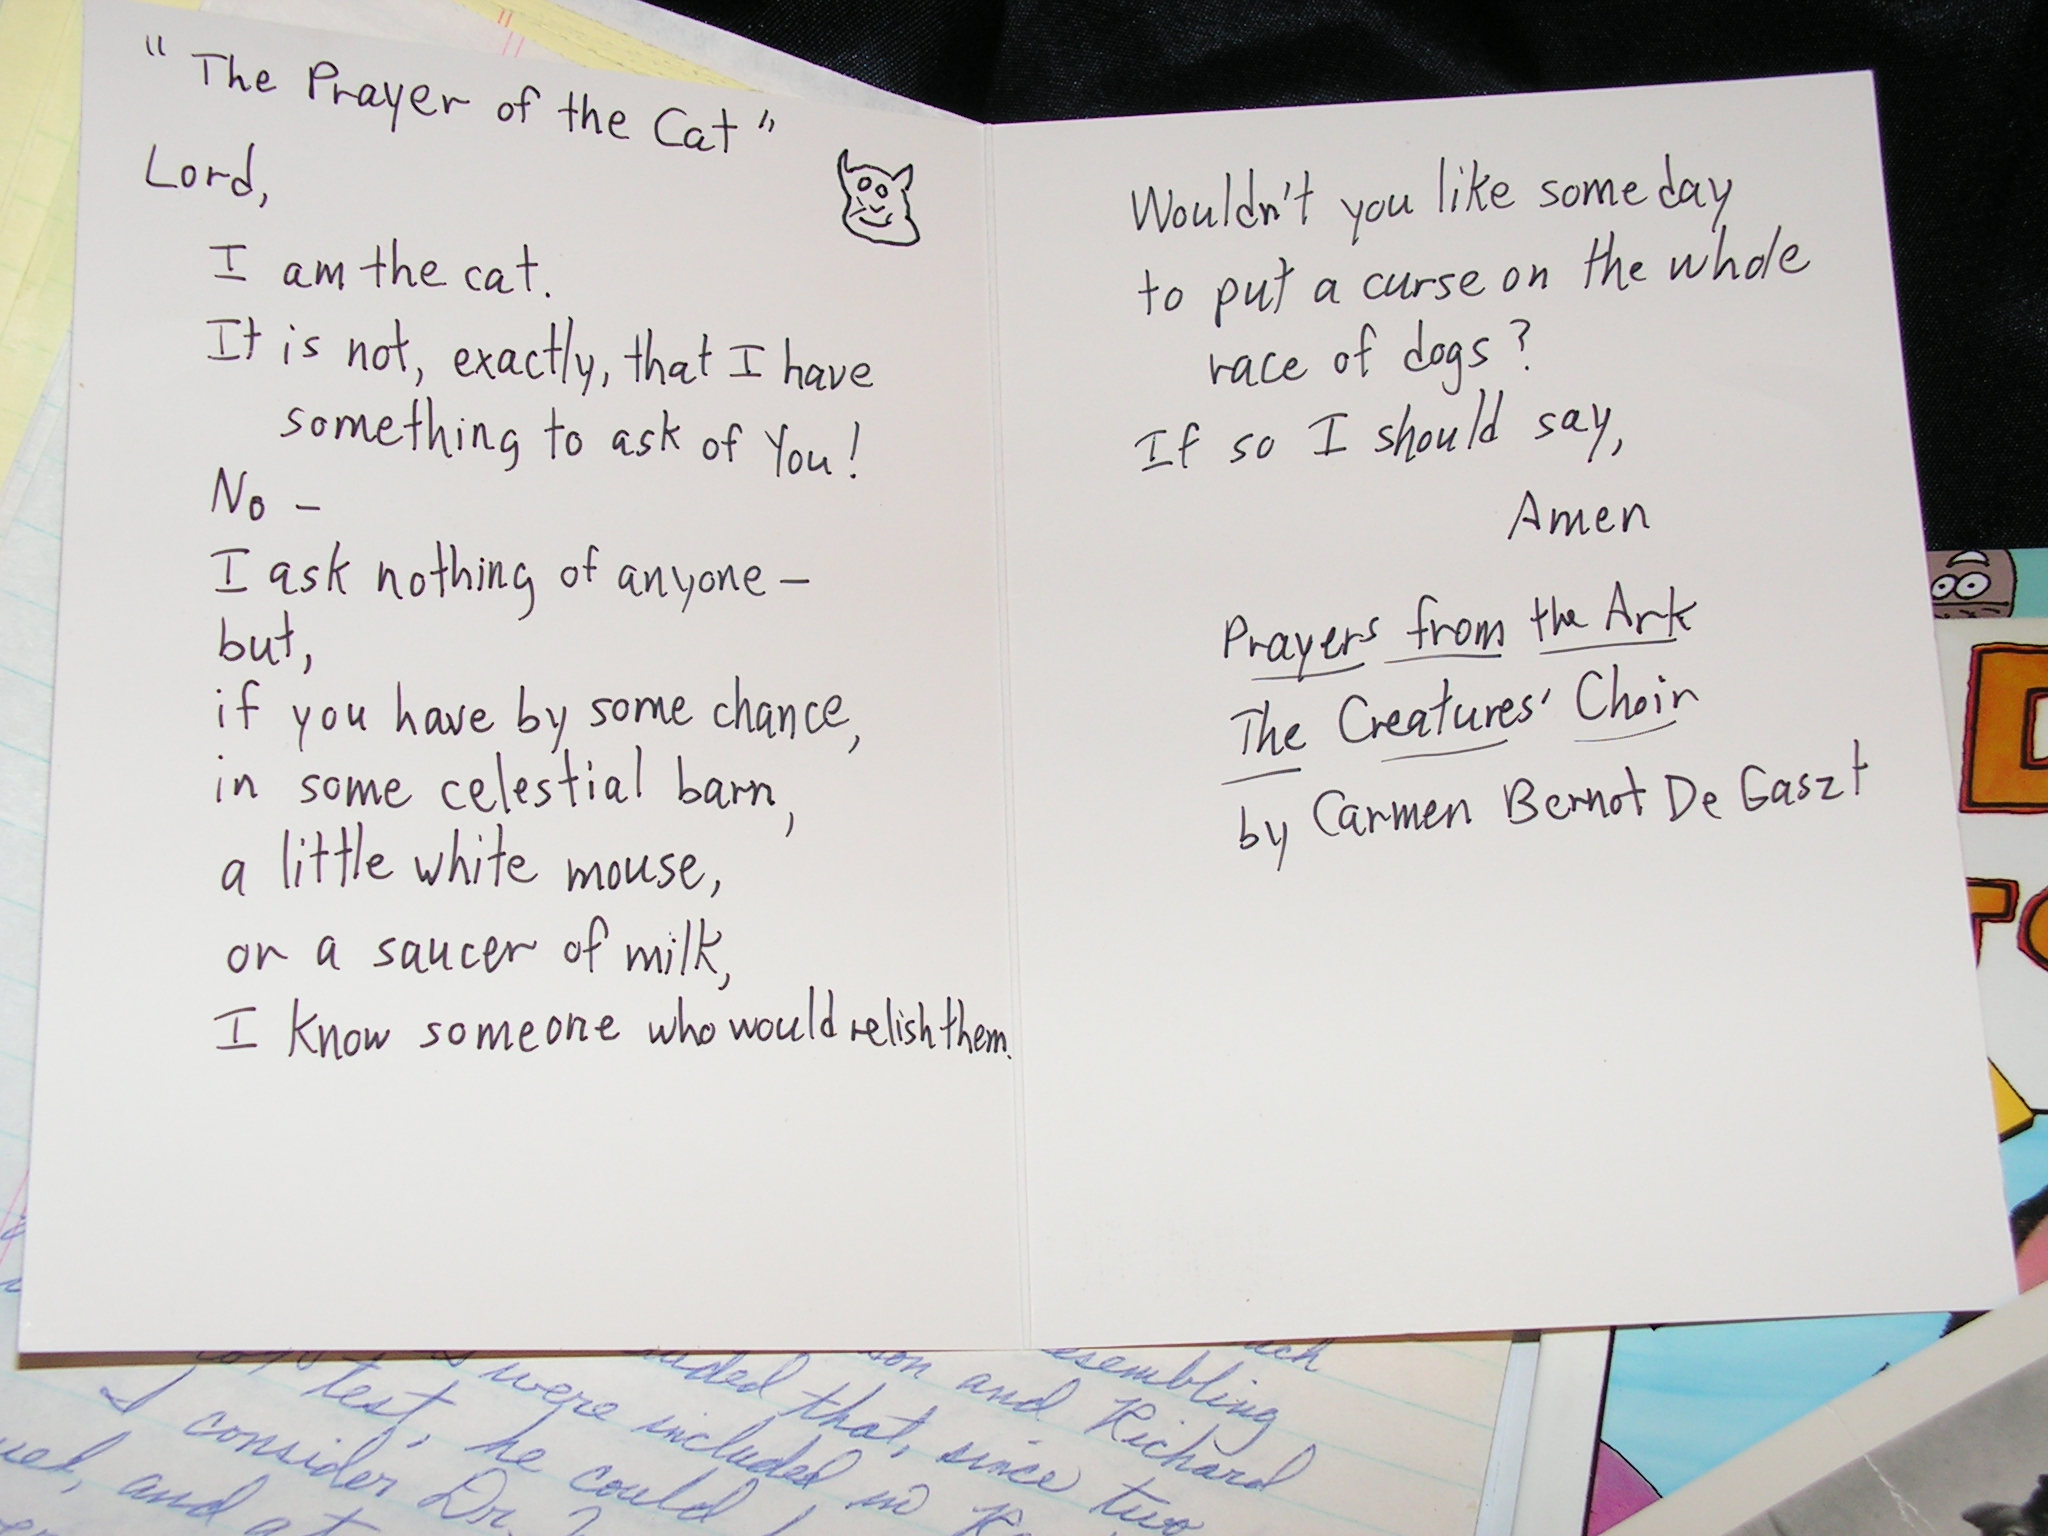 "The Prayer of the Cat"
Lord,
I am the cat.
It is not, exactly, that I have
something to ask of You!
No -
I ask nothing of anyone -
but,
if you have by some chance,
in some celestial barn,
a little white mouse,
or a saucer of milk,
I know someone who would relish them.
Wouldn't you like someday
to put a curse on the whole
race of dogs?
If so I should say,
Amen
Prayers from the Ark
The Creatures' Choir
by Carmen Bernot De Gaszt
esembling
son and Richard
were included that, since two
test, he could
included in
I consider Dr.
and at